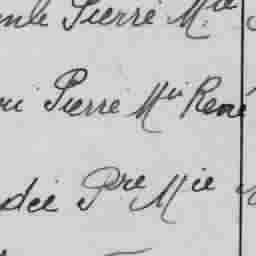 Pierre Mie
Pierre Mii René
dée Pre Mie